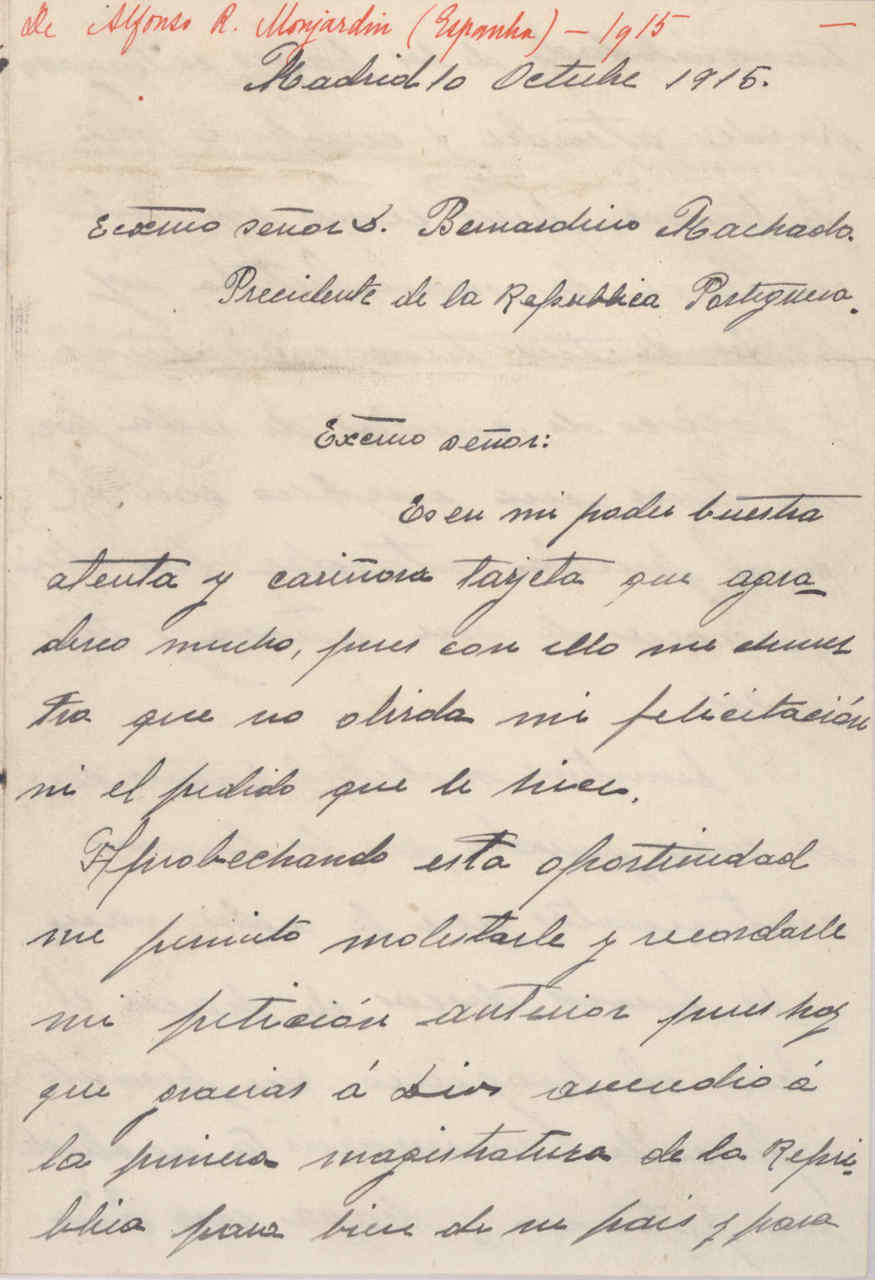 De Alfonso R. Monjardin (Espanha) – 1915 –
Madrid 10 Octubre 1915.
Excemo señor D. Bernardino Machado.
Precidente de la Republica Portuguesa.
Excmo señor:
Es en mi poder buestra
atenta y cariñosa tarjeta que agra-
desco mucho, pues con ello me demues
tra que no olvida mi felicitación
ni el pedido que le hice.
Aprobechando esta oportunidad
me permito molestarle y recordarle
mi petición anterior pues hoy
que gracias á Dios ascendio á
la primera magistratura de la Repu-
blica para bien de su pais y para